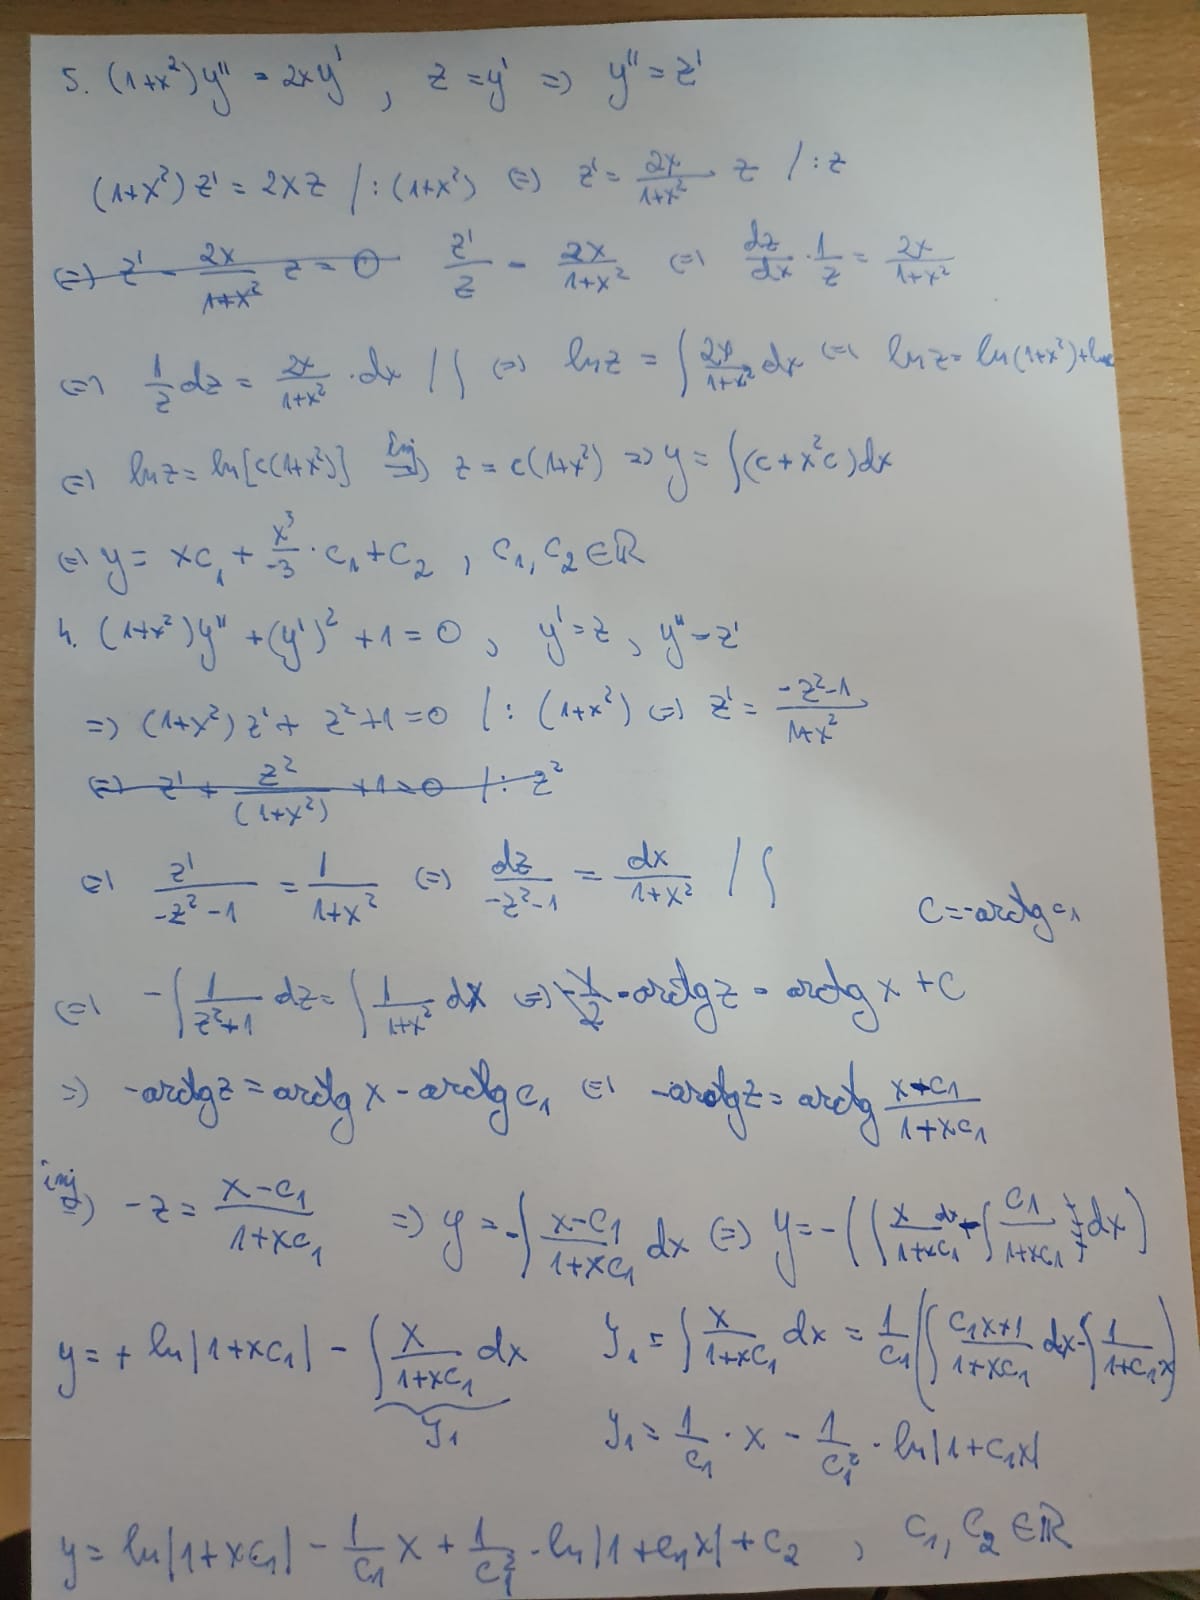 5. (1+x²)y'' = 2xy' , z = y' => y'' = z'
(1+x²)z' = 2xz /:(1+x²) (=) z' = 2x/(1+x²) z /:z
(=) z' - 2x/(1+x²) z = 0 z'/z - 2x/(1+x²) (=) dz/dx · 1/z = 2x/(1+x²)
(=) 1/z dz = 2x/(1+x²) · dx /∫ (=) ln z = ∫ 2x/(1+x²) dx (=) ln z = ln(1+x²) + ln c
(=) ln z = ln[c(1+x²)] inj => z = c(1+x²) => y = ∫(c+x²c)dx
(=) y = xc₁ + x³/3 · c₁ + c₂ , c₁, c₂ ∈ ℝ
4. (1+x²)y'' + (y')² + 1 = 0 , y' = z , y'' = z'
=> (1+x²)z' + z² + 1 = 0 /:(1+x²) (=) z' = (-z²-1)/(1+x²)
(=) z' + z²/(1+x²) + 1 = 0 /: z²
(=) z'/(-z²-1) = 1/(1+x²) (=) dz/(-z²-1) = dx/(1+x²) /∫
c = -arctg c₁
(=) -∫ 1/(z²+1) dz = ∫ 1/(1+x²) dx (=) -arctg z = arctg x + c
=) -arctg z = arctg x - arctg c₁ (=) -arctg z = arctg (x-c₁)/(1+xc₁)
inj => -z = (x-c₁)/(1+xc₁) => y = -∫ (x-c₁)/(1+xc₁) dx (=) y = -(∫ x/(1+xc₁) dx - ∫ c₁/(1+xc₁) dx)
y = + ln|1+xc₁| - ∫ x/(1+xc₁) dx y₁ = ∫ x/(1+xc₁) dx = 1/c₁ (∫ (c₁x+1)/(1+xc₁) dx - ∫ 1/(1+c₁x))
y₁ y₁ = 1/c₁ · x - 1/c₁² · ln|1+c₁x|
y = ln|1+xc₁| - 1/c₁ x + 1/c₁² · ln|1+c₁x| + c₂ , c₁, c₂ ∈ ℝ